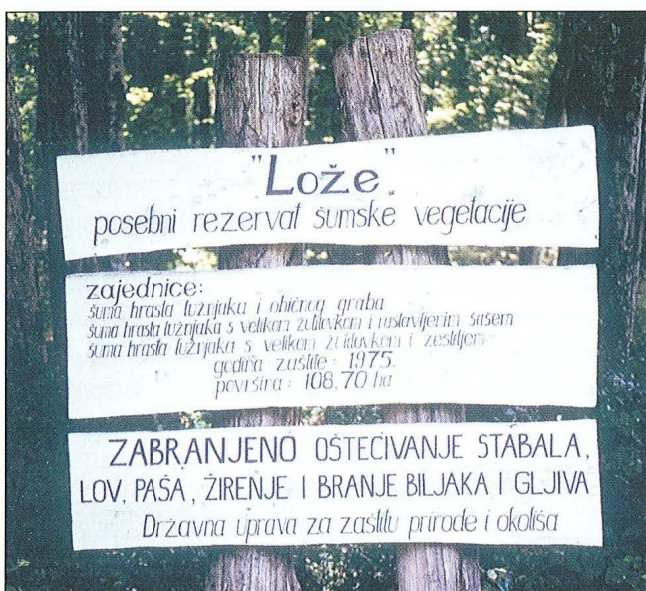 "Lože"
posebni rezervat šumske vegetacije
zajednice:
šuma hrasta lužnjaka i običnog graba
šuma hrasta lužnjaka s velikom žutilovkom i rastavljenim šašem
šuma hrasta lužnjaka s velikom žutilovkom i žestiljem
godina zaštite: 1975.
površina: 108,70 ha
ZABRANJENO OŠTEĆIVANJE STABALA,
LOV, PAŠA, ŽIRENJE I BRANJE BILJAKA I GLJIVA
Državna uprava za zaštitu prirode i okoliša